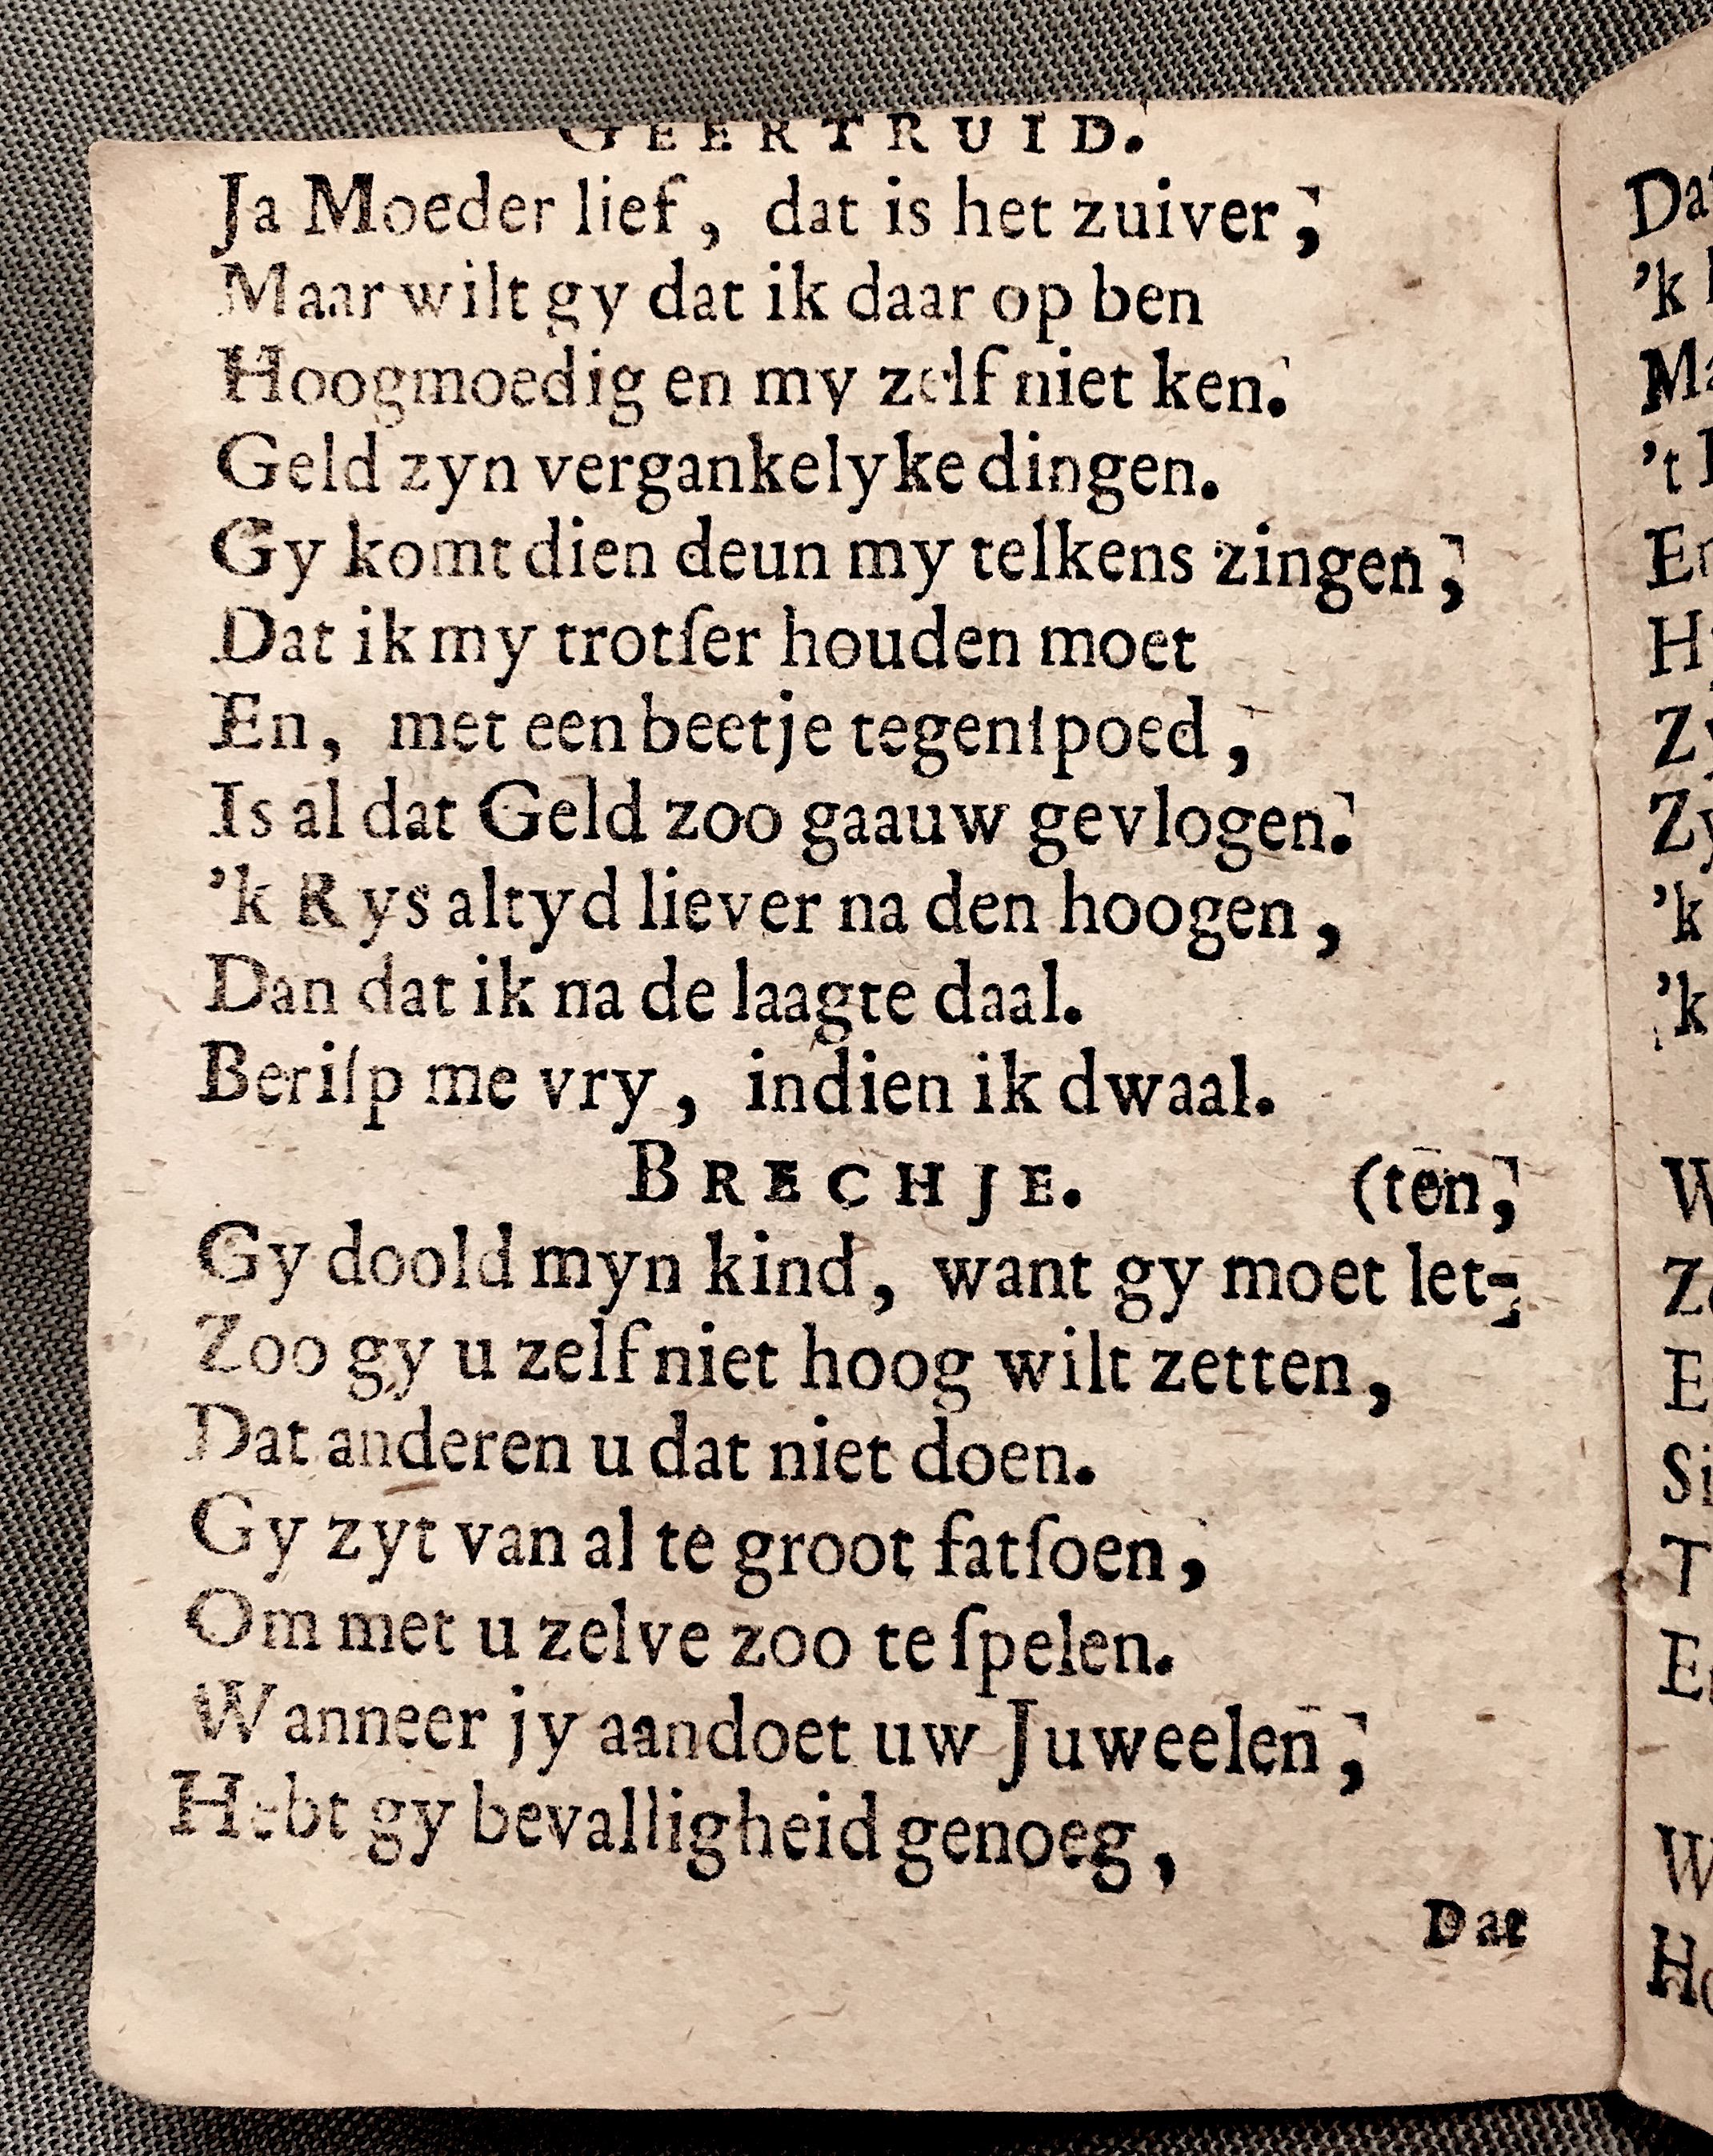 GEERTRUID.
Ja Moeder lief, dat is het zuiver,
Maar wilt gy dat ik daar op ben
Hoogmoedig en my zelf niet ken.
Geld zyn vergankelyke dingen.
Gy komt dien deun my telkens zingen,
Dat ik my trotſer houden moet
En, met een beetje tegenſpoed,
Is al dat Geld zoo gaauw gevlogen.
'k Rys altyd liever na den hoogen,
Dan dat ik na de laagte daal.
Beriſp me vry, indien ik dwaal.
BRECHJE. (ten,
Gy doold myn kind, want gy moet let-
Zoo gy u zelf niet hoog wilt zetten,
Dat anderen u dat niet doen.
Gy zyt van al te groot fatſoen,
Om met u zelve zoo te ſpelen.
Wanneer jy aandoet uw Juweelen,
Hebt gy bevalligheid genoeg,
Dat